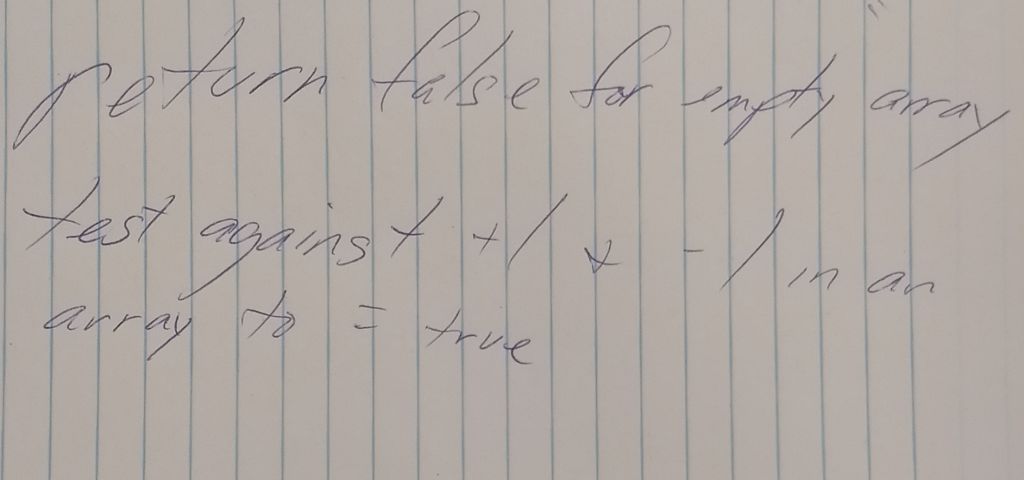 return false for empty array
test against +1 & -1 in an
array to = true